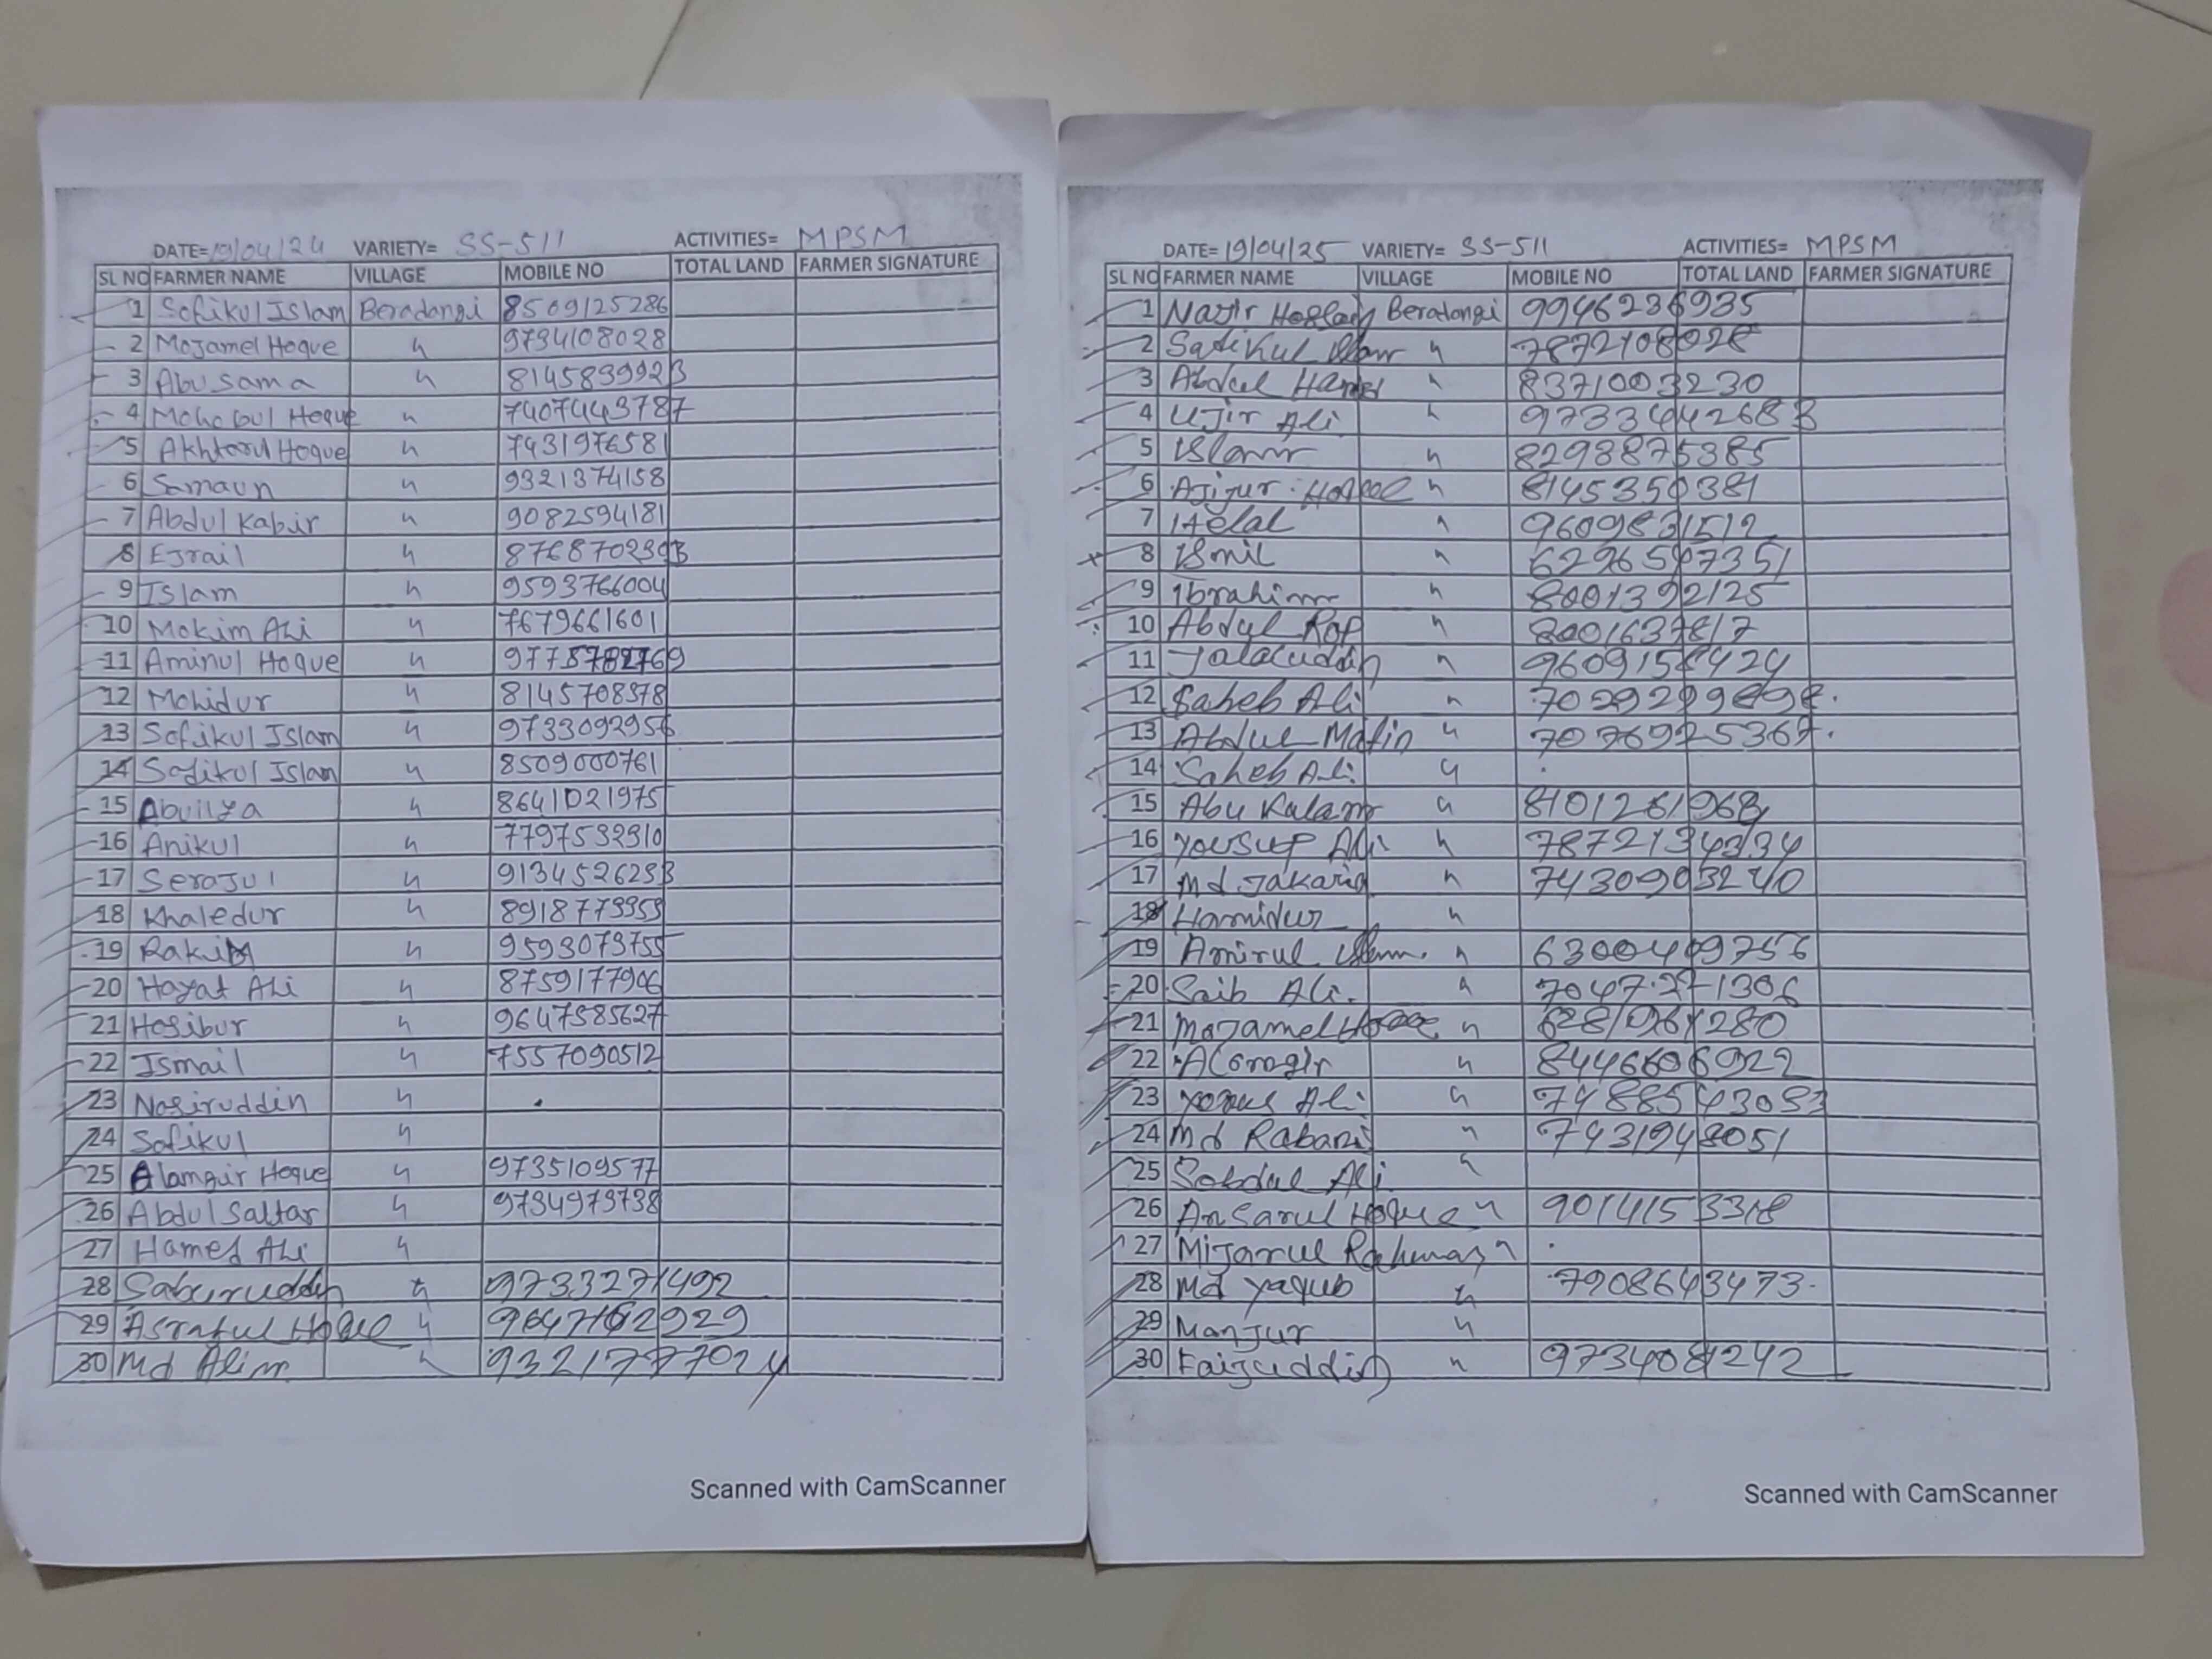 DATE= 19/04/24 VARIETY= SS-511 ACTIVITIES= MPSM
SL NO FARMER NAME VILLAGE MOBILE NO TOTAL LAND FARMER SIGNATURE
1 Sofikul Islam Beradangi 8509125286
2 Mojamel Hoque 〃 9734108028
3 Abu sama 〃 8145839923
4 Mohobul Hoque 〃 7407443787
5 Akhtarul Hoque 〃 7431976581
6 Samaun 〃 9321374158
7 Abdul Kabir 〃 9082594181
8 Ejrail 〃
9 Islam 〃 9593766004
10 Mokim Ali 〃 7679661601
11 Aminul Hoque 〃
12 Mohidur 〃 8145708378
13 Sofikul Islam 〃 9733092956
14 Sadikul Islam 〃 8509000761
15 Abuilya 〃 8641021975
16 Anikul 〃 7797532310
17 Serajul 〃 9134526233
18 Khaledur 〃 8918773353
19 〃 9593073755
20 Hayat Ali 〃 8759177906
21 Hosibur 〃 9647585627
22 Ismail 〃 7557090512
23 Nosiruddin 〃
24 Sofikul 〃
25 Alamgir Hoque 〃 9735109577
26 Abdul Sattar 〃 9734973738
27 Hamed Ali 〃
28 Saburuddin 〃 9733271492
29 Asraful Hoque 〃
30 Md Alim 〃 9321777024
Scanned with CamScanner
DATE= 19/04/25 VARIETY= SS-511 ACTIVITIES= MPSM
SL NO FARMER NAME VILLAGE MOBILE NO TOTAL LAND FARMER SIGNATURE
1 Najir Beradangi 9946236935
2 Safikul Islam 〃 7872108028
3 Abdul 〃 8371003230
4 Ujir Ali 〃 9733442683
5 Islam 〃 8298875385
6 Ajijur Hoque 〃 8145350381
7 Helal 〃 9609831512
8 Ismil 〃 6296507351
9 Ibrahim 〃 8001392125
10 Abdul Rop 〃 8001637817
11 Jalaluddin 〃 9609158424
12 Saheb Ali 〃 7029299898.
13 Abdul Matin 〃 7076925367.
14 Saheb Ali 〃
15 Abu Kalam 〃 8101261968
16 Yousup Ali 〃 7872134334
17 Md Jakaria 〃 7430903240
18 Hamidur 〃
19 Amirul Islam. 〃 6300409756
20 Saib Ali. 〃 7047271306
21 Mojamel Hoque 〃
22 Alomgir 〃 8446606922
23 Ali 〃 7488543083
24 Md Rabani 〃 7431948051
25 Sobdul Ali 〃
26 Ansarul Hoque 〃 9014153318
27 Mijarul Rahman 〃
28 Md Yaqub 〃 7908643473.
29 Manjur 〃
30 Faijuddin 〃 9734081242
Scanned with CamScanner